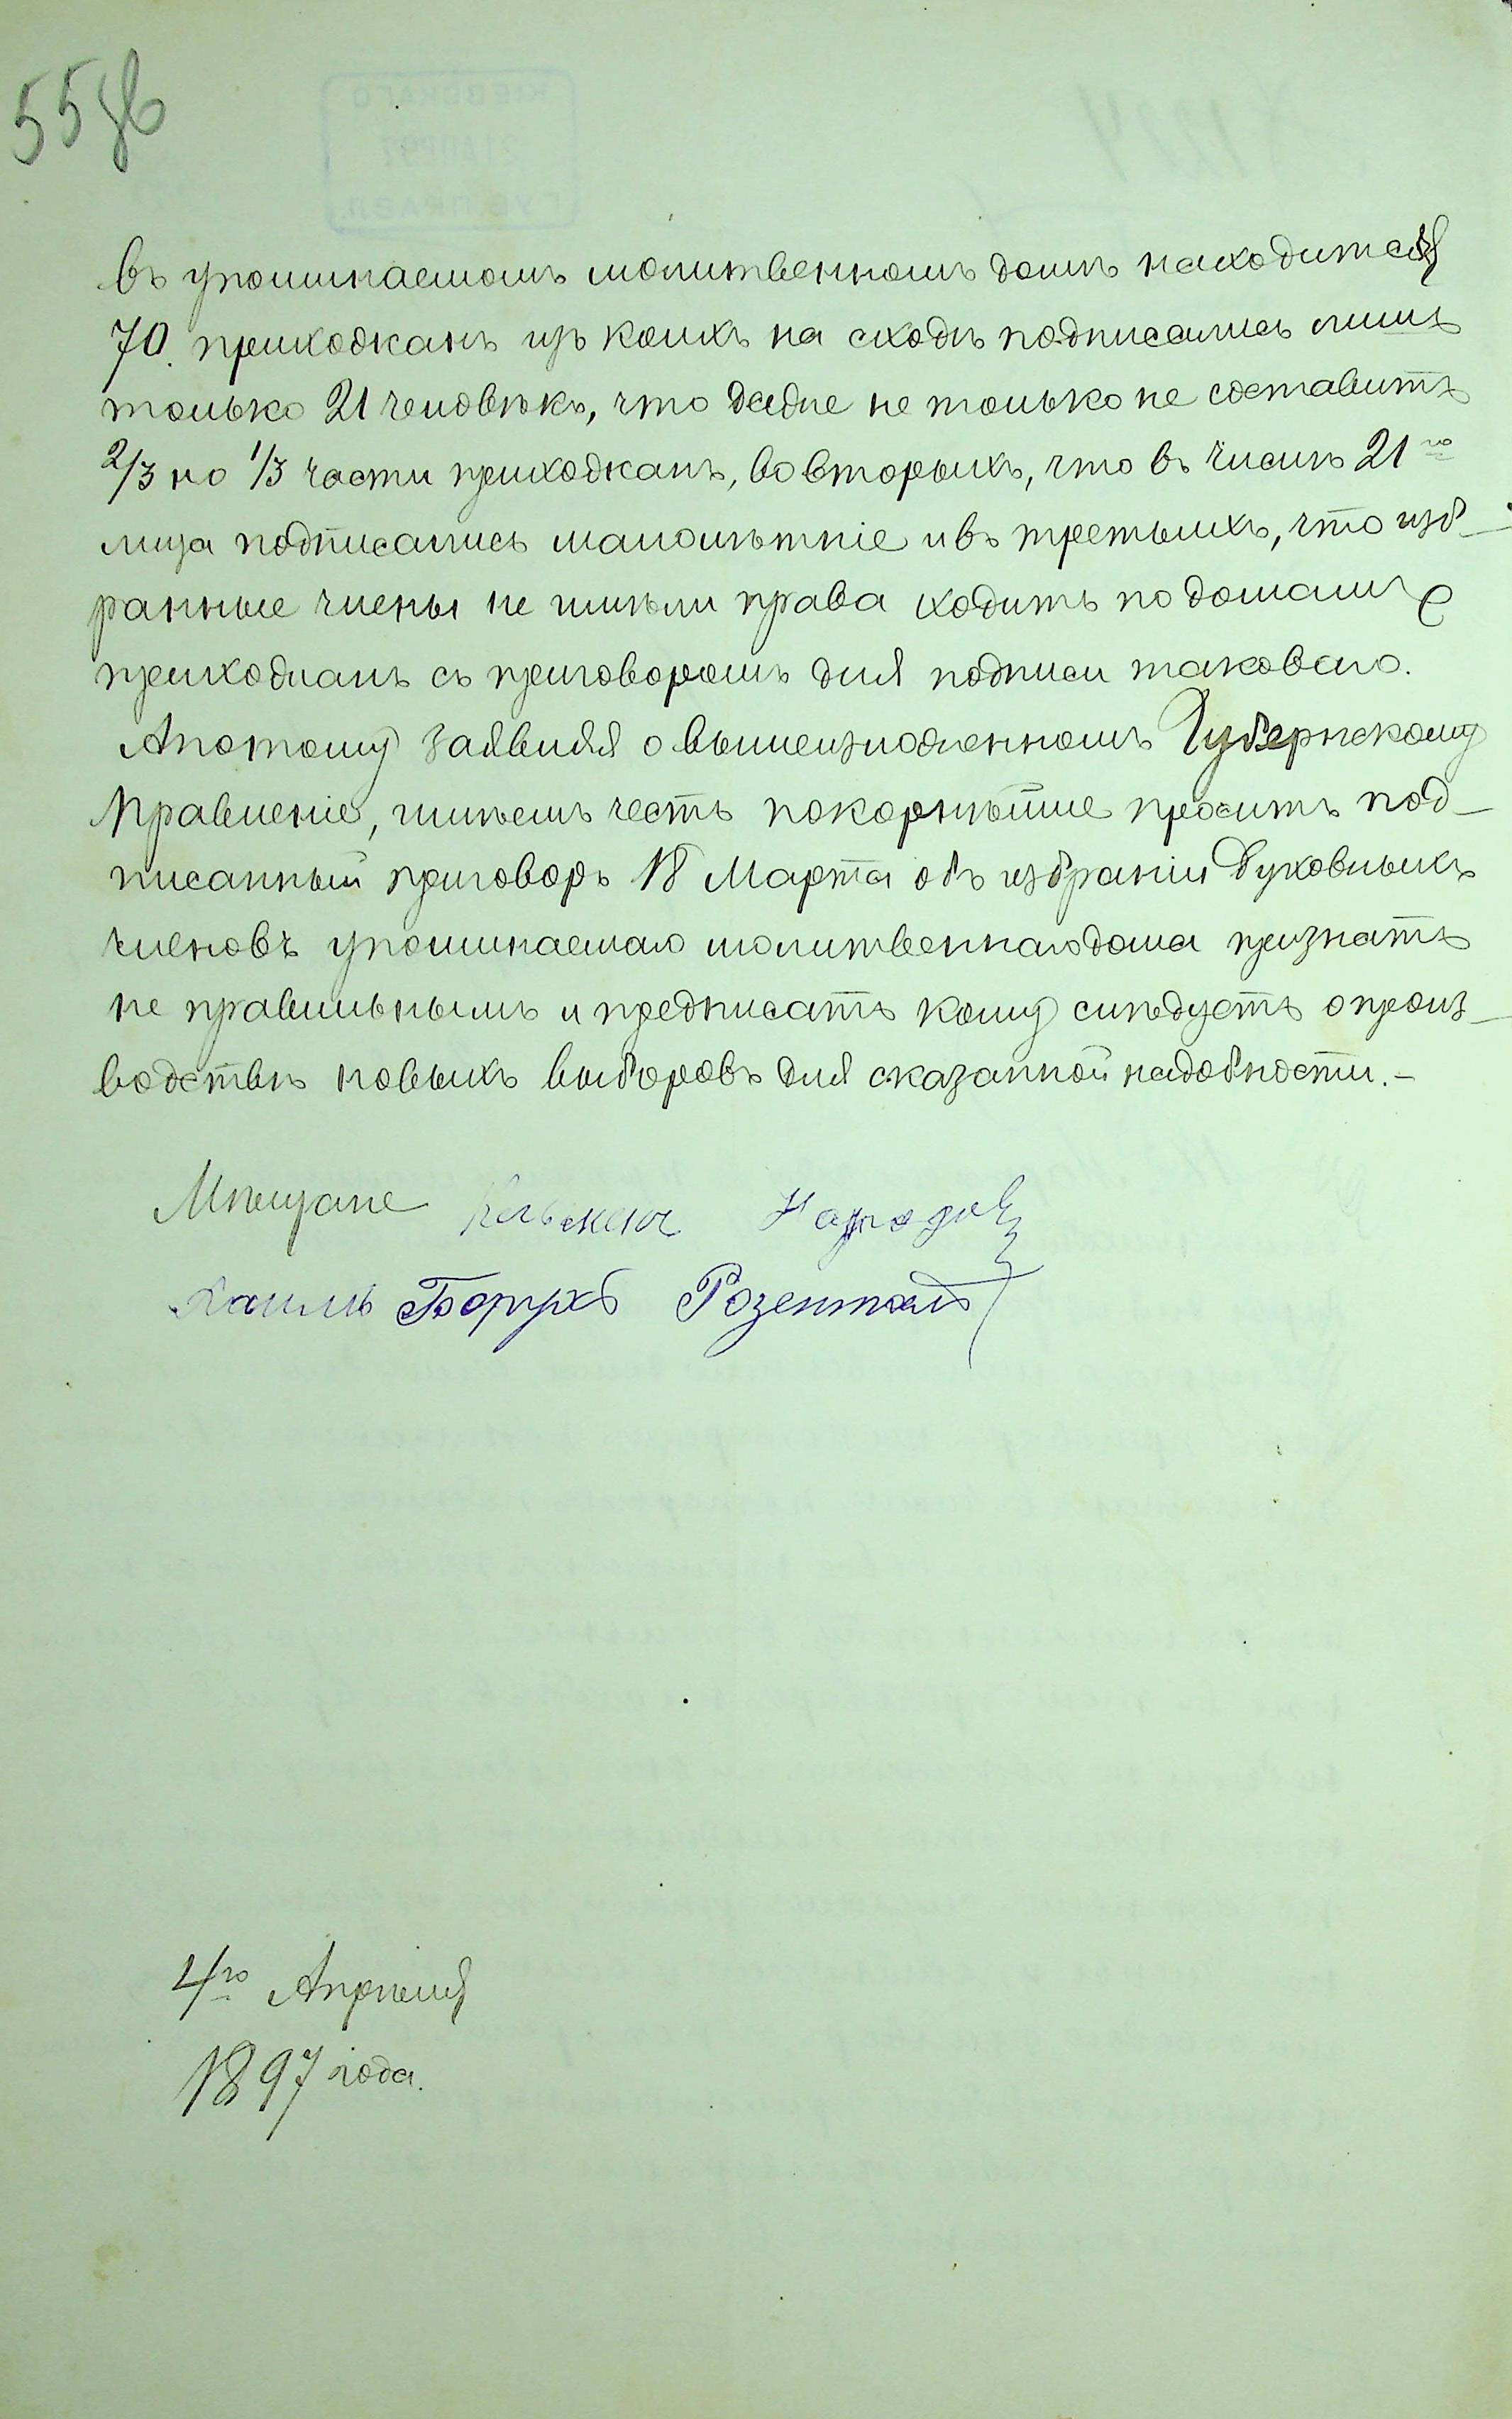 55об
въ упоминаемомъ молитвенномъ домѣ находится
70. прихожканъ изъ коихъ на сходѣ подписались лишь
только 21 человѣкъ, что даже не только не составитъ
2/3 но 1/3 части прихожканъ, во вторыхъ, что въ числѣ 21го
лица подписались малолѣтніе и въ третьихъ, что изб-
ранные члены не имѣли права ходить по домамъ
прихожанъ съ приговоромъ для подписи таковаго.
Апотому заявляя о вышеизложенномъ Губернскому
Правленіе, имѣемъ честь покорнѣйше просить под-
писанный приговоръ 18 Марта объ избраніи Духовныхъ
членовъ упоминаемаго молитвеннаго дома признать
не правильнымъ и предписать кому слѣдуетъ о произ-
водствѣ новыхъ выборовъ для сказанной надобности.-
Мѣщане
Борухъ Розенталь
4го Апрѣля
1897 года.